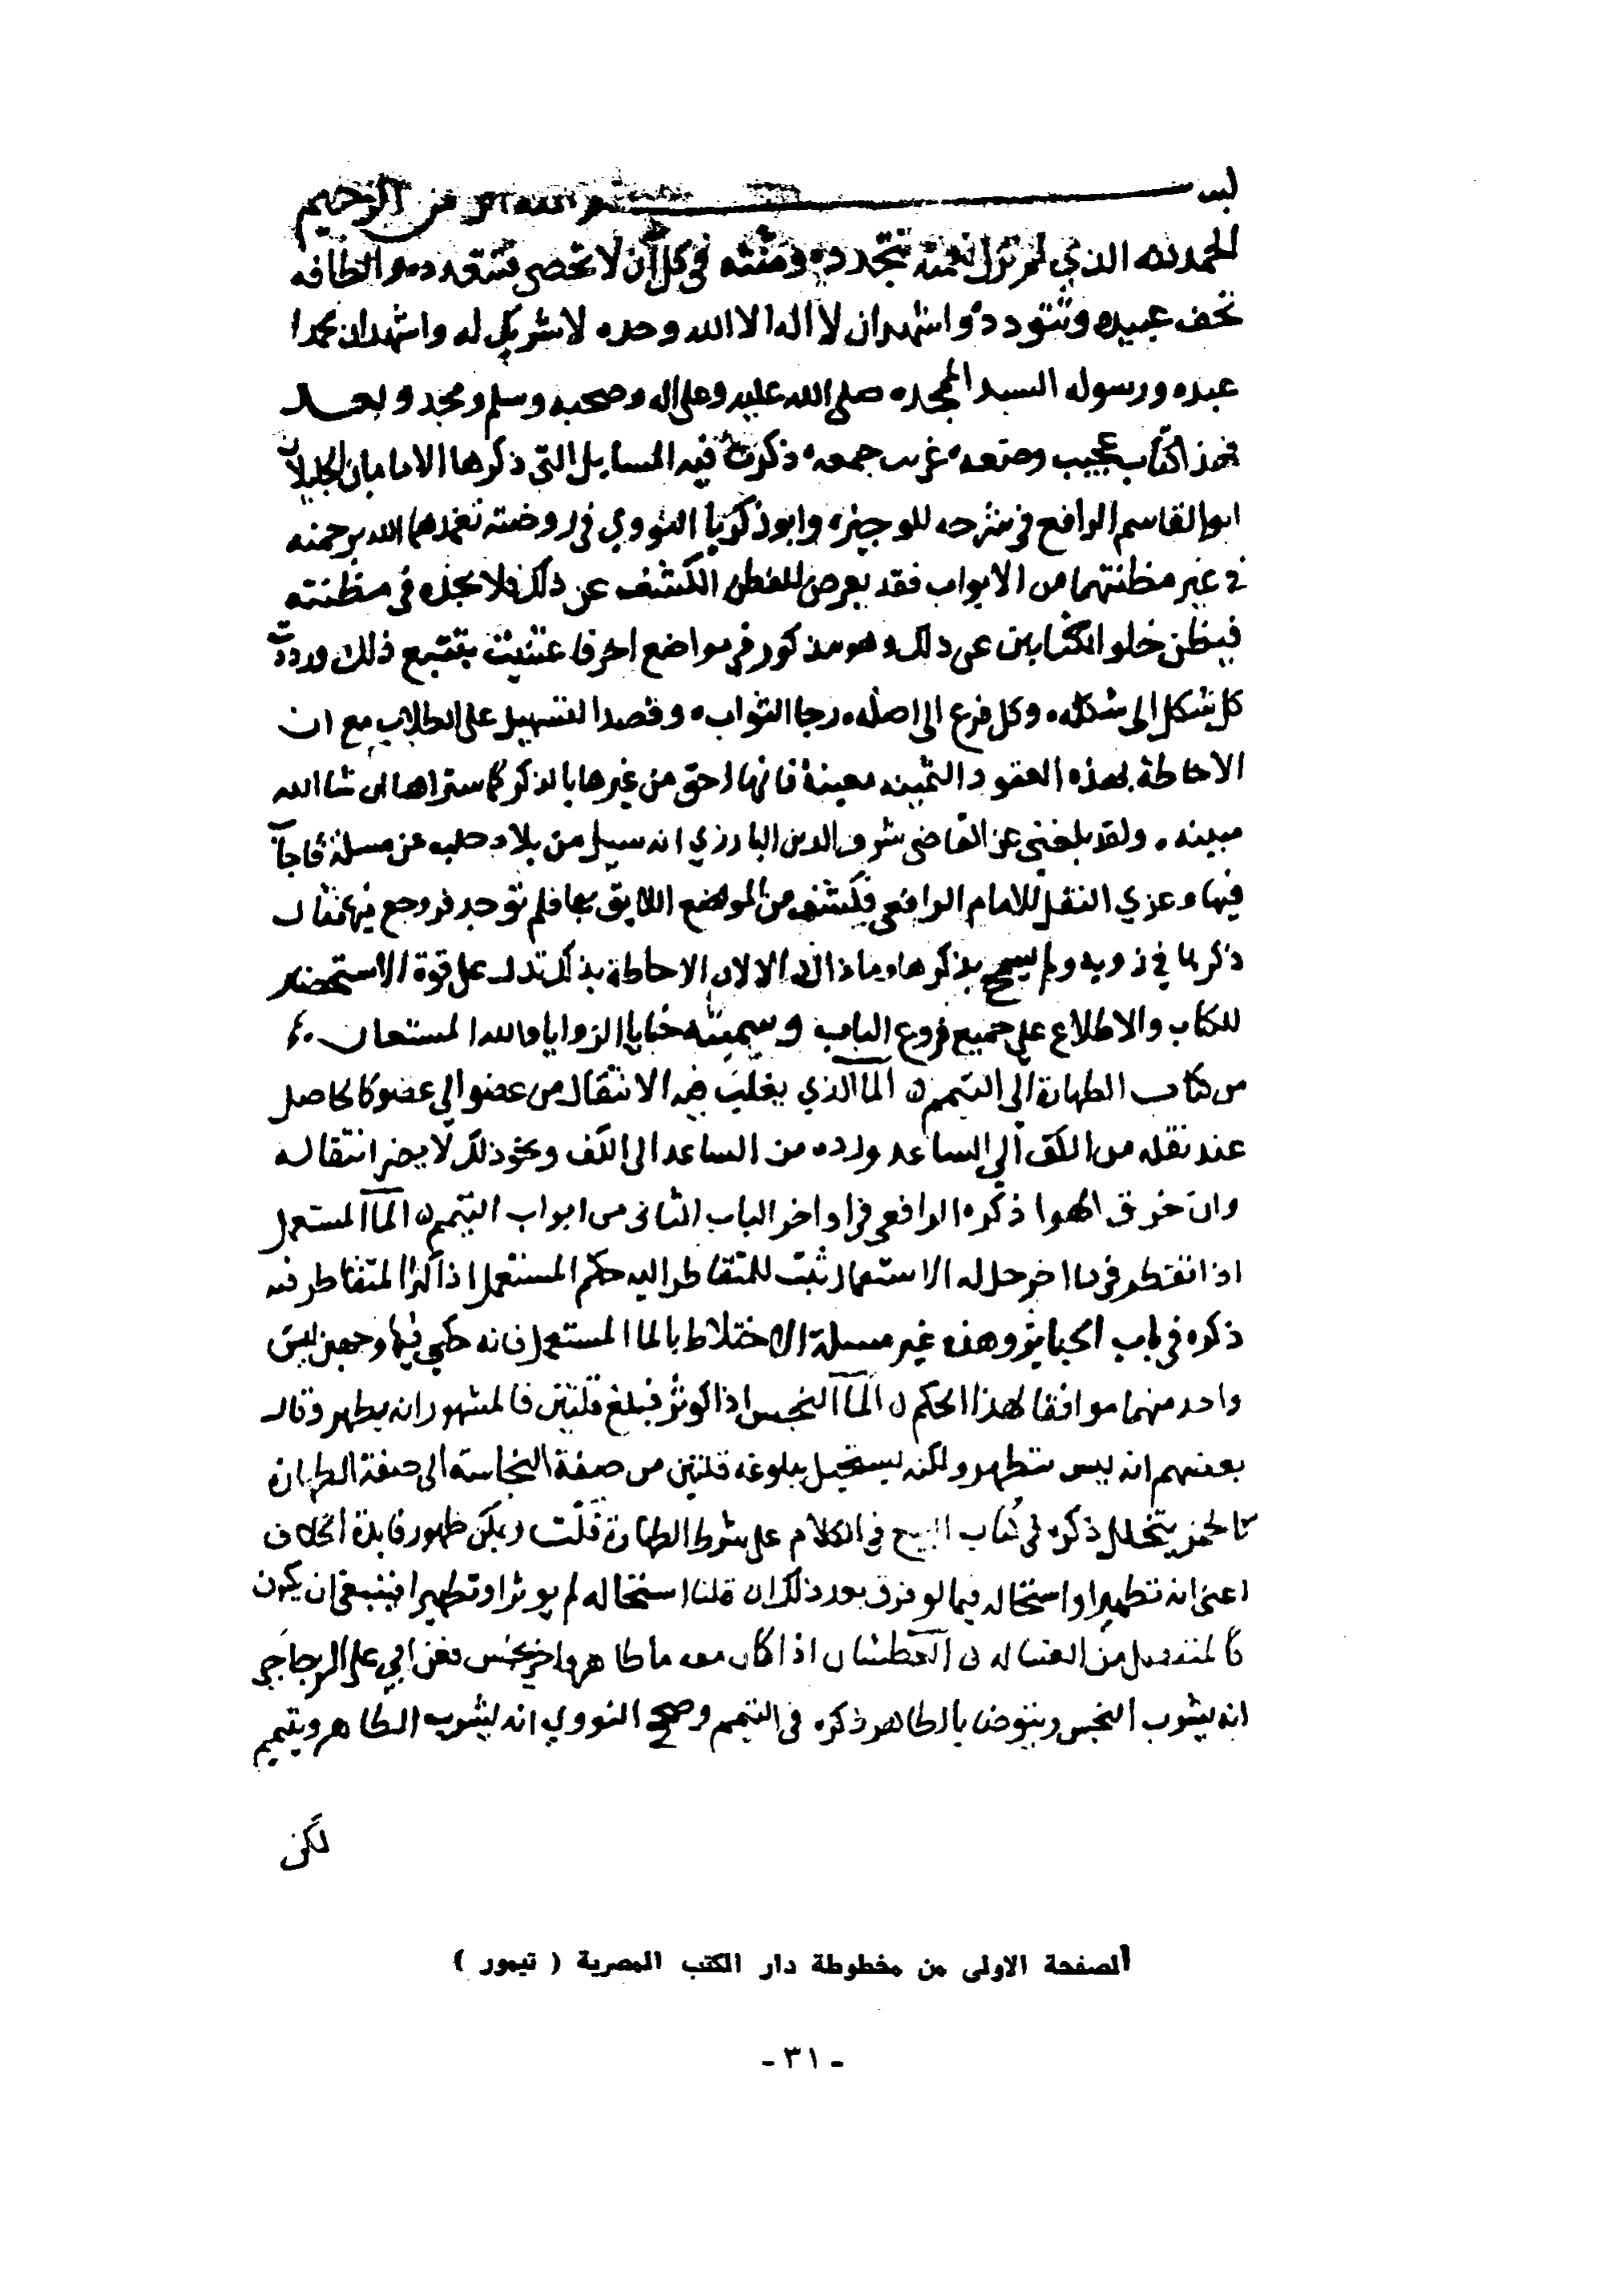 بسم الله الرحمن الرحيم
الحمد لله الذي لم تزل نعمته تتجدد ومنته في كل آن لا تحصى فتتعدد والطافه
تحف عبيده وتتودد واشهد ان لا اله الا الله وحده لا شريك له واشهد ان محمدا
عبده ورسوله السيد الممجد صلى الله عليه وعلى اله وصحبه وسلم ومجد وبعد
فهذا كتاب عجيب وضعه غريب جمعه ذكرت فيه المسايل التي ذكرها الامامان الجليلان
ابو القاسم الرافعي في شرحه للوجيز وابو ذكريا النووي في روضته تغمدهما الله برحمته
في غير مظنتهما من الابواب فقد يعرض للفطن الكشف عن ذلك فلا يجده في مظنته
فيظن خلو الكتابين عن ذلك وهو مذكور في مواضع اخر فاعتنيت بتتبع ذلك ورددت
كل شكل الى شكله وكل فرع الى اصله رجا الثواب وقصدا لتسهيل على الطلاب مع ان
الاحاطة بهذه العقود الثمينه معينة فانها احق من غيرها بالذكر كما ستراها ان شا الله
مبينه ولقد بلغني عن القاضي شرف الدين البارزي انه سيل من بلاد حلب عن مسلة فاجاب
فيها وعزي النقل للامام الرافعي فكشف من المواضع اللايق بها فلم توجد فروجع فيها فقال
ذكرها في زويه ولم يسمح بذكرها وما ذاك الا لان الاحاطة بذلك تدل على قوة الاستحضار
للكتاب والاطلاع على جميع فروع الباب وسميته خبايا الزوايا والله المستعان
من كتاب الطهارة الى التيمم الما الذي يغلب فيه الانتقال من عضو الى عضو كالحاصل
عند نقله من الكف الى الساعد ورده من الساعد الى الكف ونحو ذلك لا يضر انتقاله
وان خرق الهوا ذكره الرافعي في اواخر الباب الثاني من ابواب التيمم الما المستعمل
اذا تقطر في ما اخر حل له الاستعمال ثبت للمتقاطر اليه حكم المستعمل اذا كثر المتقاطر فيه
ذكره في باب الجنايز وهذه غير مسلة الاختلاط بالما المستعمل فانه حكى فيها وجهين ليس
واحد منهما موافقا لهذا الحكم الما النجس اذا كوثر فبلغ قلتين فالمشهور انه يطهر وقال
بعضهم انه ليس بتطهر ولكنه يستحيل ببلوغه قلتين من صفة النجاسة الى صفة الطهارة
كالخمر يتخلل ذكره في كتاب البيع في الكلام على شرط الطهارة قلت ويمكن ظهور فايدة الخلاف
اعني انه تطهير او استحاله فيما لو فرق بعد ذلك ان قلنا استحاله لم يوثر او تطهير فينبغي ان يكون
كالمنفصل من الغساله العطشان اذا كان معه ما طاهر واخر نجس فعن ابي علي الزجاجي
انه يشرب النجس ويتوضا بالطاهر ذكره في التيمم وصحح النووي انه يشرب الطاهر ويتيمم
لكن
الصفحة الاولى من مخطوطة دار الكتب المصرية ( تيمور )
- ٣١ -